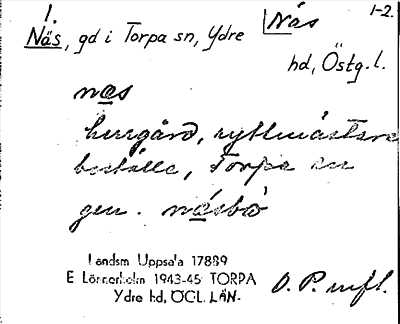 1. Näs 1-2.
Näs, gd i Torpa sn, Ydre
hd, Östg. l.
næs
herrgård, ryttmästare
boställe, Torpa sn
gen. næsbo
Landsm Uppsala 17889
E Lönnerholm 1943-45 TORPA
Ydre hd, ÖGL. LÄN.
O. P. mfl.